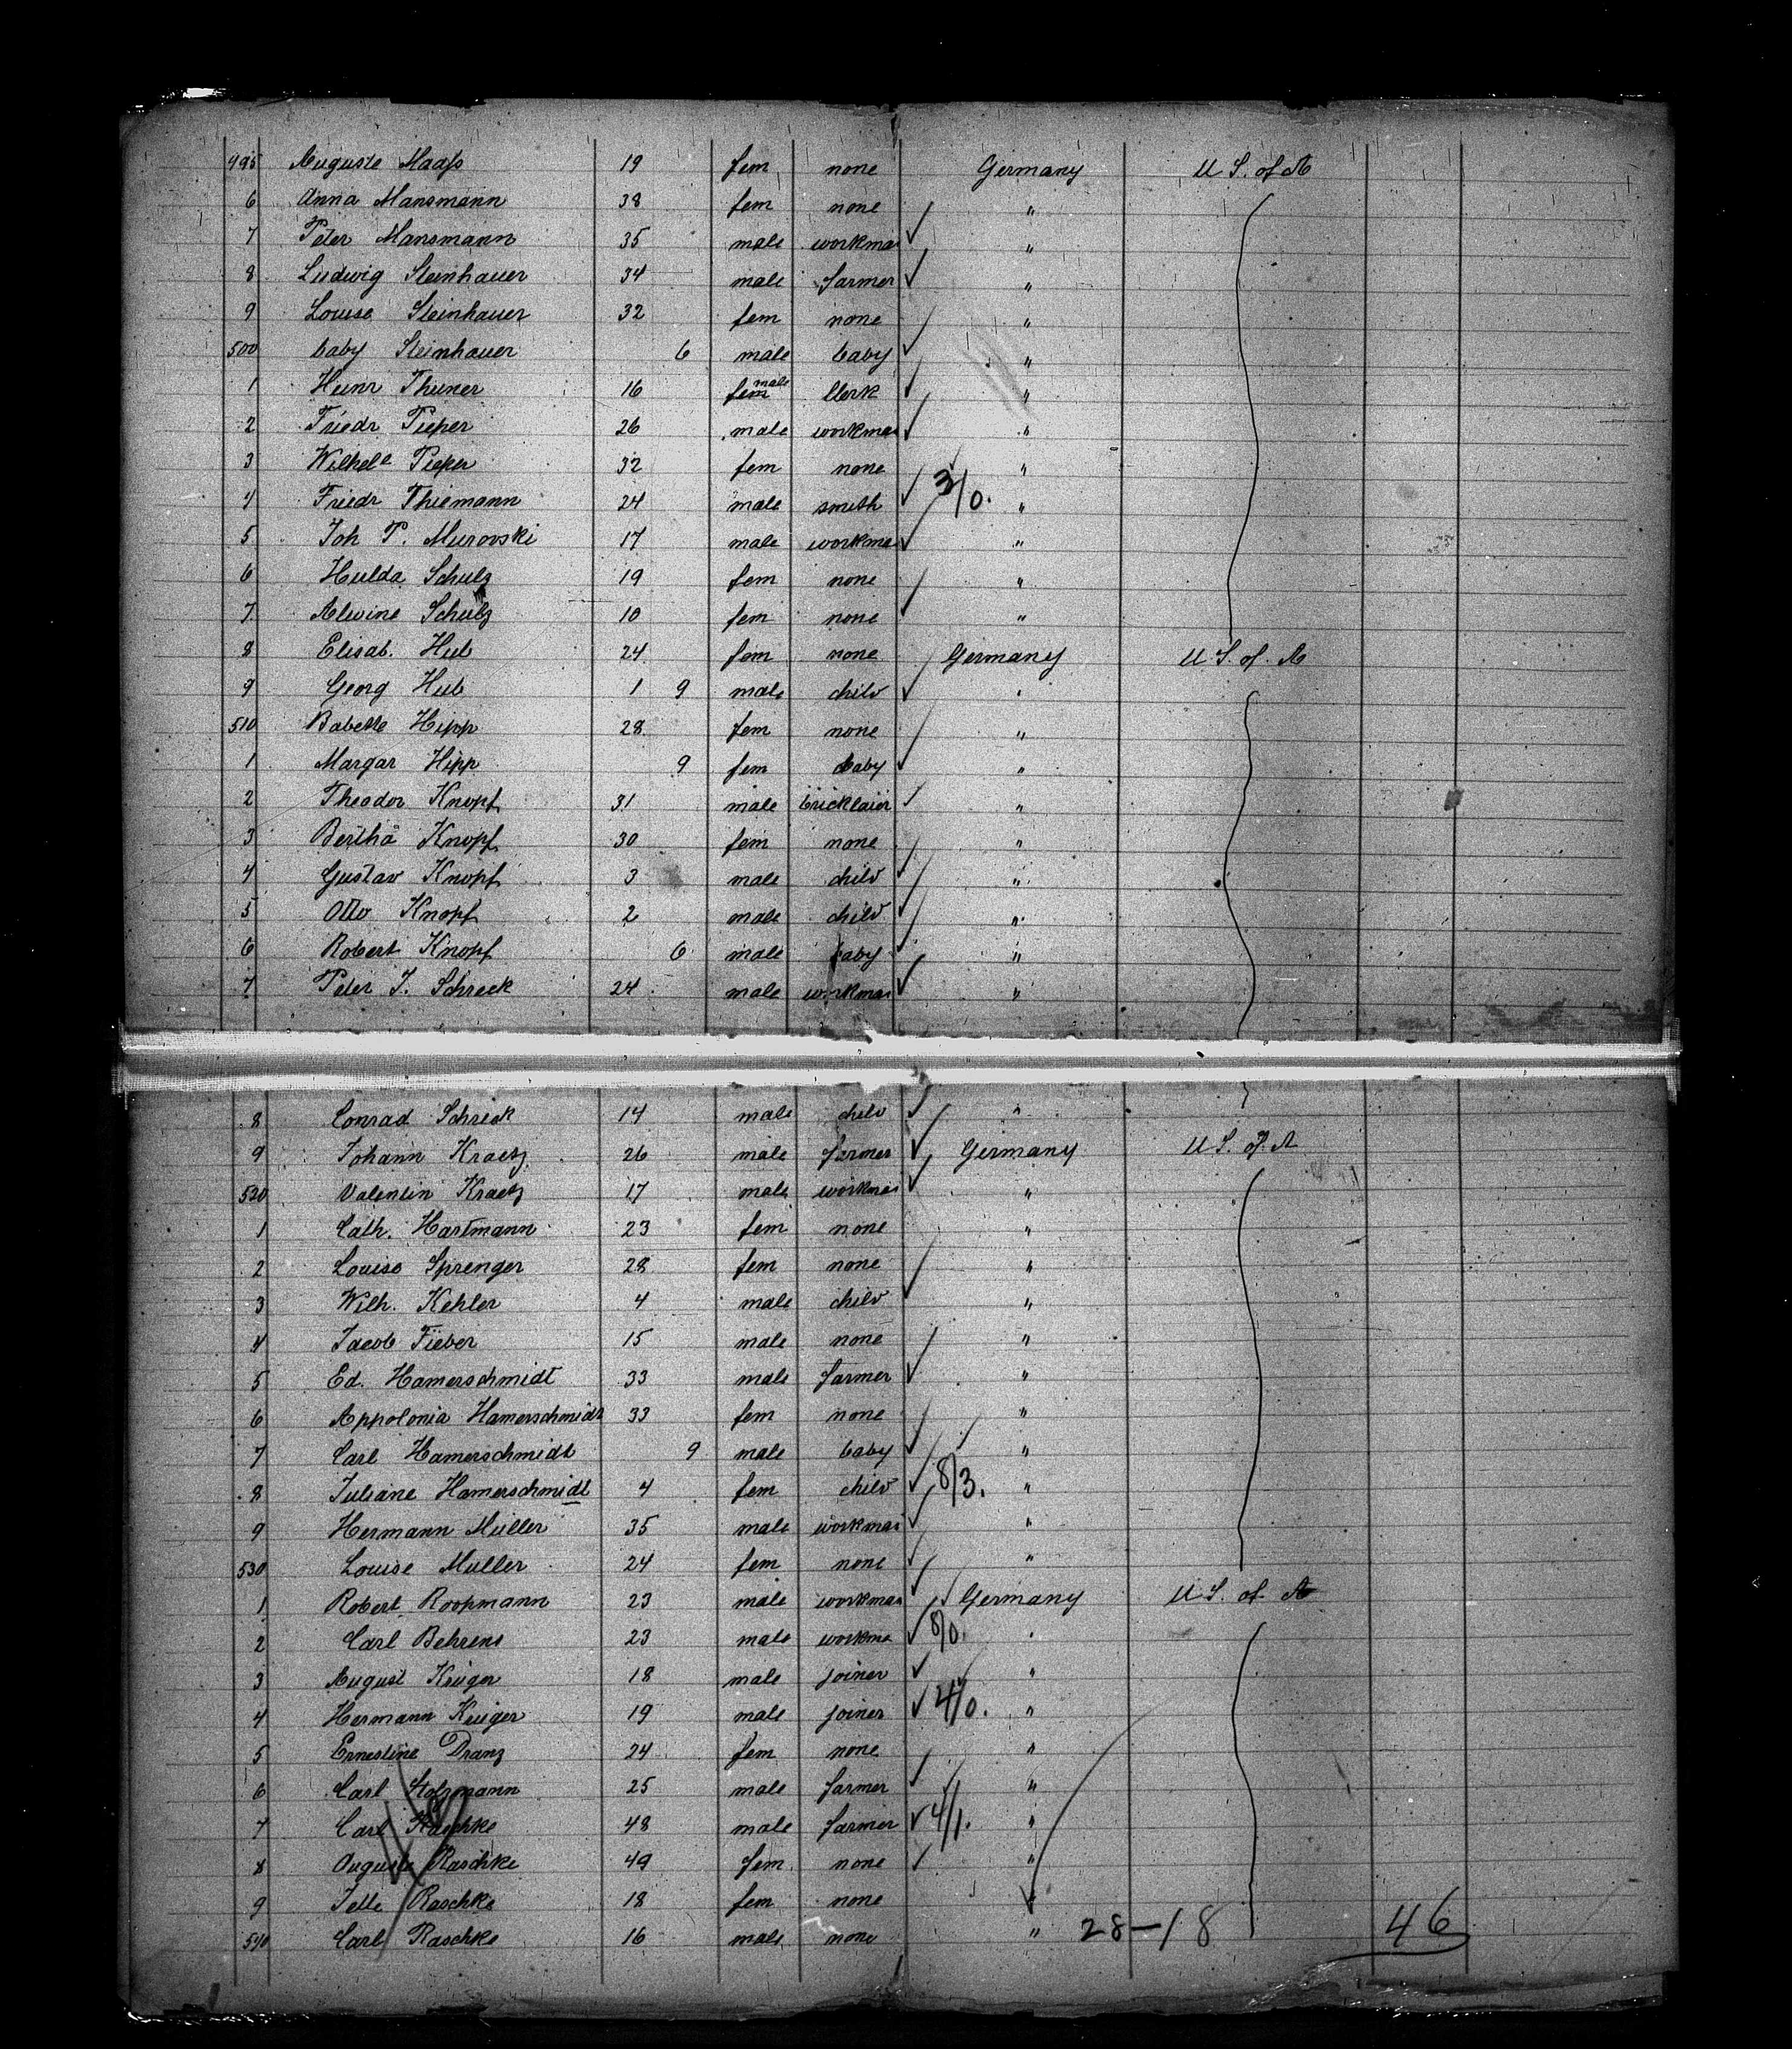 495 Auguste Maaß 19 fem none Germany U S. of A
6 Anna Mansmann 38 fem none "
7 Peter Mansmann 35 male workman "
8 Ludwig Steinhauer 34 male farmer "
9 Louise Steinhauer 32 fem none "
500 baby Steinhauer 6 male baby "
1 Heinr Thuner 16 fem male Clerk "
2 Friedr Pieper 26 male workman "
3 Wilhele Pieper 32 fem none "
4 Friedr Thiemann 24 male smith 3/0. "
5 Joh P. Murovski 17 male workman "
6 Hulda Schulz 19 fem none "
7 Alwine Schulz 10 fem none "
8 Elisab. Hub 24 fem none Germany U S. of A
9 Georg Hub 1 9 male child "
510 Babette Hipp 28 fem none "
1 Margar Hipp 9 fem baby "
2 Theodor Knopf 31 male bricklaier "
3 Bertha Knopf 30 fem none "
4 Gustav Knopf 3 male child "
5 Otto Knopf 2 male child "
6 Robert Knopf 6 male baby "
7 Peter J. Schreck 24 male workman "
8 Conrad Schreck 14 male child "
9 Johann Kraetz 26 male farmer Germany U S. of A
520 Valentin Kraetz 17 male workman "
1 Cath. Hartmann 23 fem none "
2 Louise Sprenger 28 fem none "
3 Wilh. Kehler 4 male child "
4 Jacob Fieber 15 male none "
5 Ed. Hamerschmidt 33 male farmer "
6 Appolonia Hamerschmidt 33 fem none "
7 Carl Hamerschmidt 9 male baby "
8 Juliane Hamerschmidt 4 fem child 8/3. "
9 Hermann Müller 35 male workman "
530 Louise Muller 24 fem none "
1 Robert Roopmann 23 male workman Germany U S. of A
2 Carl Behrens 23 male workma 8/0. "
3 August Krüger 18 male joiner "
4 Hermann Kruger 19 male joiner 4/0. "
5 Ernestine Dranz 24 fem none "
6 Carl 25 male farmer "
7 Carl Raschke 48 male farmer 4/1. "
8 Auguste Raschke 49 fem none "
9 Jette Raschke 18 fem none "
540 Carl Raschke 16 male none " 28-18 46